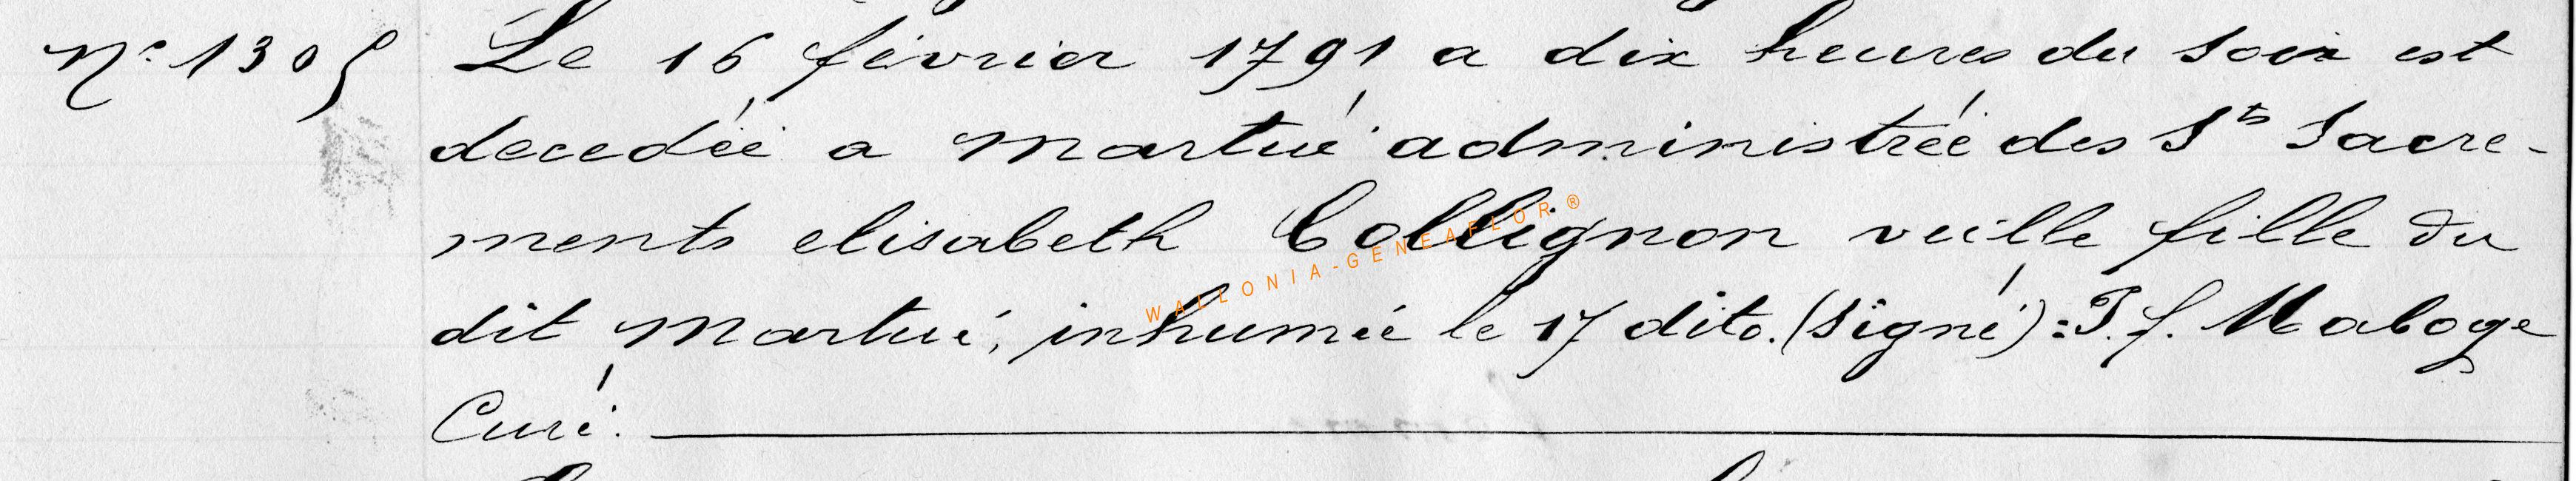 N° 1305 Le 16 février 1791 a dix heures du soir est
decedée a Martué administrée des Sts Sacre-
ments elisabeth Collignon veille fille du
dit Martué, inhumée le 17 dito. (signé) : P. f. Maboge
Curé.
WALLONIA-GENEAFLOR®